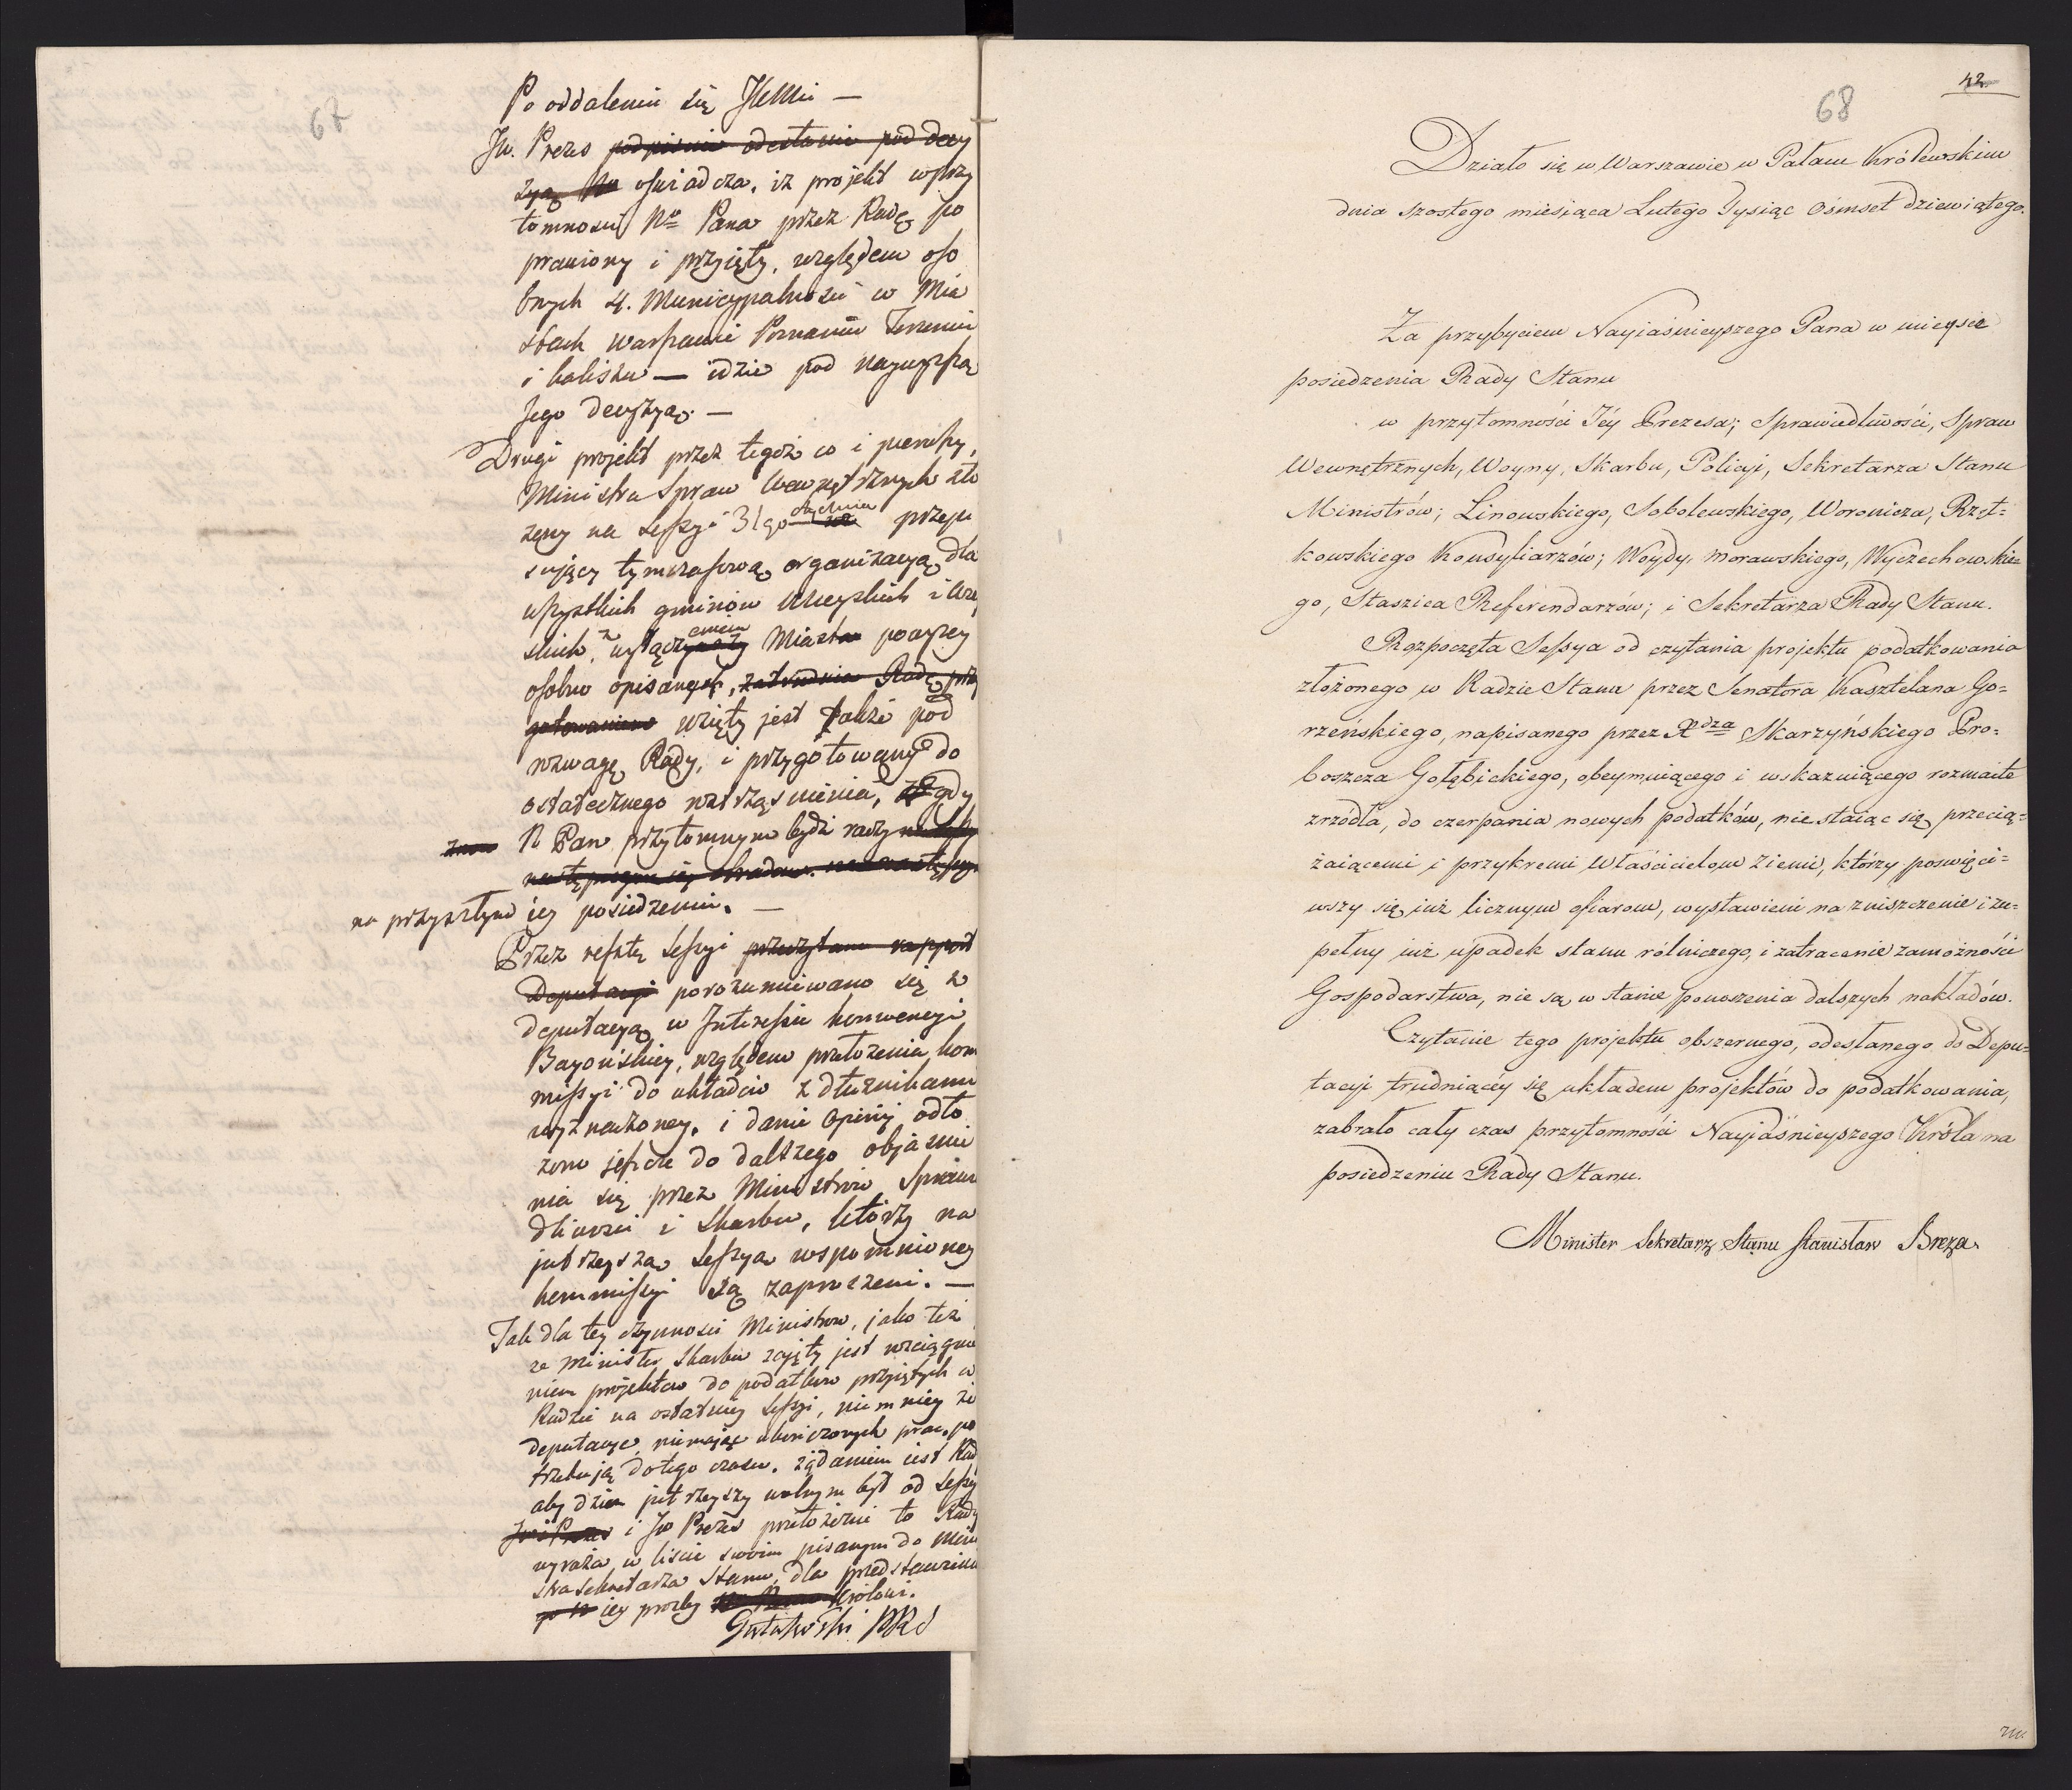 67
Po oddaleniu się JKMci —
JW. Prezes podpisanie odesłanie pod decy
zyą Na oświadcza, iż projekt w przy
tomności No Pana przez Radę po
prawiony i przyięty, względem oso
bnych 4. Municypalności w Mia
stach Warszawie Poznaniu Toruniu
i Kaliszu — idzie pod naywyższą
Jego decyzyą. —
Drugi projekt przez tegóż co i pierwszy,
Ministra Spraw Wewnętrznych zło
żony na Sessyi 31go stycznia przepi
sujący tymczasową organizacyą dla
wszystkich gminów Mieyskich i Wiey
skich, z wyłączeniem Miast powyżey
osobno opisanych, zatrudnia Radę przy
gotowaniem wzięty jest także pod
rozwagę Rady, i przygotowany do
ostatecznego roztrząśnienia, gdy
N Pan przytomnym bydź raczy
na przyszłym iey posiedzeniu. —
Przez resztę Sessyi przeczytano rapport
Deputacyi porozumiewano się z
deputacyą w Interessie konwencyi
Bayońskiey, względem przełożenia kom
missyi do układów z dłużnikami
wyznaczoney, i danie opinij odło
żono jeszcze do dalszego objaśnie
nia się przez Ministrów Sprawie
dliwości i Skarbu, którzy na
jutrzeyszą Sessyą wspomnioney
kommissyi są zaproszeni. —
Tak dla tey czynności Ministrów, jako też
że Minister Skarbu zajęty jest wciągnie
niem projektów do podatków przyiętych w
Radzie na ostatniey Sessyi, niemniey że
deputacye, niemając ukończonych prac, po
trzebują do tego czasu, żądaniem jest Rady
aby dzień jutrzeyszy wolnym był od Sessyi
JW Prezes i JW Prezes przełożenie to Rady
wyraża w liście swoim pisanym do Mini
stra Sekretarza Stanu, dla przedstawienia
iey prośby Królowi.
Gutakowski PRS
42
68
Działo się w Warszawie w Pałacu Królewskim
dnia szostego miesiąca Lutego Tysiąc Ośmset dziewiątego.
Za przybyciem Nayiaśnieyszego Pana w mieysce
posiedzenia Rady Stanu
w przytomności Jéy Prezesa; Sprawiedliwości, Spraw
Wewnętrznych, Woyny, Skarbu, Policyi, Sekretarza Stanu
Ministrów; Linowskiego, Sobolewskiego, Woronicza, Rzęt=
kowskiego Konsyliarzów; Woydy, Morawskiego, Wyczechowskie=
go, Staszica Referendarzów; i Sekretarza Rady Stanu.
Rozpoczęta Sessya od czytania projektu podatkowania
złożonego w Radzie Stanu przez Senatora Kasztelana Go=
rzeńskiego, napisanego przez Xdza Skarzyńskiego Pro=
boszcza Gołębickiego, obeymuiącego i wskazuiącego rozmaite
zrzódła, do czerpania nowych podatków, nie staiąc się przecią=
żaiącemi i przykremi Właścicielom Ziemi, którzy poswięci=
wszy się iuż licznym ofiarom, wystawieni na zniszczenie i zu=
pełny iuż upadek stanu rólniczego, i zatracenie zamożności
Gospodarstwa, nie są w stanie ponoszenia dalszych nakładów.
Czytanie tego projektu obszernego, odesłanego do Depu=
tacyi trudniącey się układem projektów do podatkowania,
zabrało cały czas przytomności Nayjaśnieyszego Króla na
posiedzeniu Rady Stanu.
Minister Sekretarz Stanu Stanisław Breza.